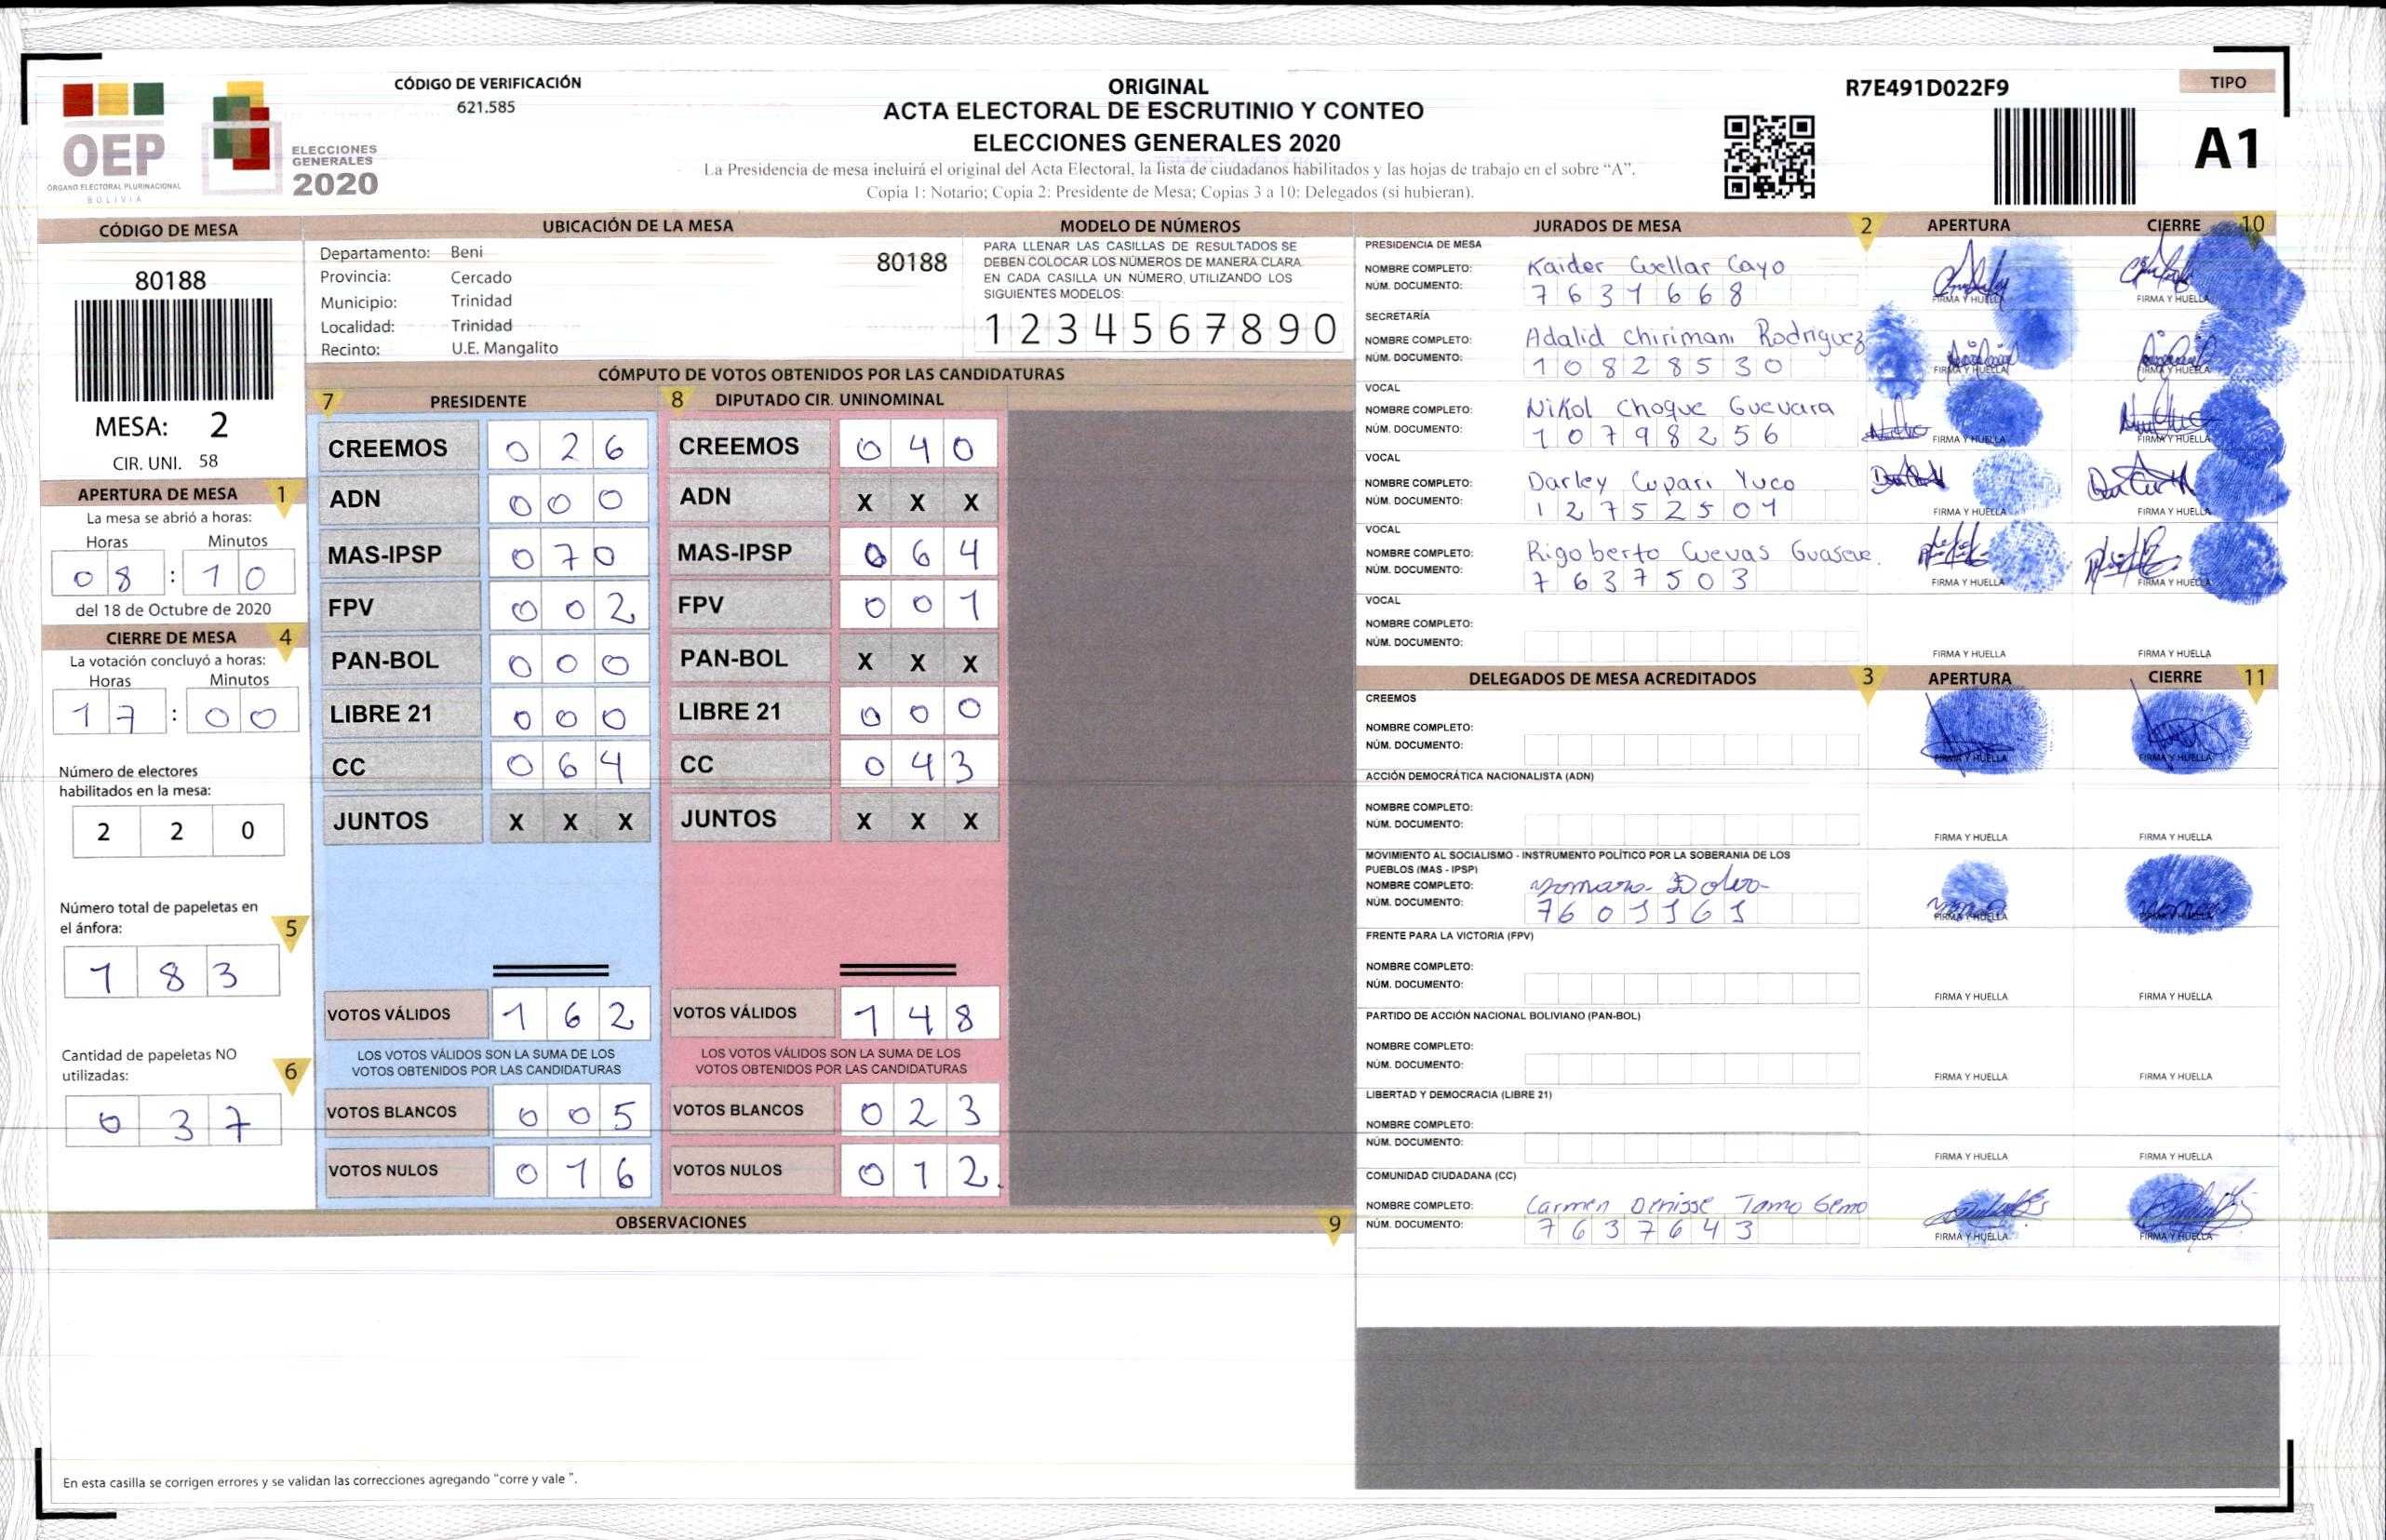 CÓDIGO DE VERIFICACIÓN
621.585
OEP
ÓRGANO ELECTORAL PLURINACIONAL
BOLIVIA
ELECCIONES
GENERALES
2020
ORIGINAL
ACTA ELECTORAL DE ESCRUTINIO Y CONTEO
ELECCIONES GENERALES 2020
La Presidencia de mesa incluirá el original del Acta Electoral, la lista de ciudadanos habilitados y las hojas de trabajo en el sobre “A”.
Copia 1: Notario; Copia 2: Presidente de Mesa; Copias 3 a 10: Delegados (si hubieran).
R7E491D022F9
TIPO
A1
CÓDIGO DE MESA
80188
MESA: 2
CIR. UNI. 58
UBICACIÓN DE LA MESA
Departamento: Beni
80188
Provincia: Cercado
Municipio: Trinidad
Localidad: Trinidad
Recinto: U.E. Mangalito
MODELO DE NÚMEROS
PARA LLENAR LAS CASILLAS DE RESULTADOS SE
DEBEN COLOCAR LOS NÚMEROS DE MANERA CLARA.
EN CADA CASILLA UN NÚMERO, UTILIZANDO LOS
SIGUIENTES MODELOS:
1 2 3 4 5 6 7 8 9 0
APERTURA DE MESA 1
La mesa se abrió a horas:
Horas Minutos
0 8 : 1 0
del 18 de Octubre de 2020
CIERRE DE MESA 4
La votación concluyó a horas:
Horas Minutos
1 7 : 0 0
Número de electores
habilitados en la mesa:
2 2 0
Número total de papeletas en
el ánfora: 5
1 8 3
Cantidad de papeletas NO
utilizadas: 6
0 3 7
CÓMPUTO DE VOTOS OBTENIDOS POR LAS CANDIDATURAS
7 PRESIDENTE
CREEMOS 0 2 6
ADN 0 0 0
MAS-IPSP 0 7 0
FPV 0 0 2
PAN-BOL 0 0 0
LIBRE 21 0 0 0
CC 0 6 4
JUNTOS X X X
VOTOS VÁLIDOS 1 6 2
LOS VOTOS VÁLIDOS SON LA SUMA DE LOS
VOTOS OBTENIDOS POR LAS CANDIDATURAS
VOTOS BLANCOS 0 0 5
VOTOS NULOS 0 1 6
8 DIPUTADO CIR. UNINOMINAL
CREEMOS 0 4 0
ADN X X X
MAS-IPSP 0 6 4
FPV 0 0 1
PAN-BOL X X X
LIBRE 21 0 0 0
CC 0 4 3
JUNTOS X X X
VOTOS VÁLIDOS 1 4 8
LOS VOTOS VÁLIDOS SON LA SUMA DE LOS
VOTOS OBTENIDOS POR LAS CANDIDATURAS
VOTOS BLANCOS 0 2 3
VOTOS NULOS 0 1 2.
OBSERVACIONES 9
En esta casilla se corrigen errores y se validan las correcciones agregando "corre y vale ".
JURADOS DE MESA 2 APERTURA CIERRE 10
PRESIDENCIA DE MESA
NOMBRE COMPLETO: Kaider Cuellar Cayo
NÚM. DOCUMENTO: 7 6 3 1 6 6 8
FIRMA Y HUELLA FIRMA Y HUELLA
SECRETARÍA
NOMBRE COMPLETO: Adalid Chirimani Rodriguez
NÚM. DOCUMENTO: 1 0 8 2 8 5 3 0
FIRMA Y HUELLA FIRMA Y HUELLA
VOCAL
NOMBRE COMPLETO: Nikol Choque Guevara
NÚM. DOCUMENTO: 1 0 7 9 8 2 5 6
FIRMA Y HUELLA FIRMA Y HUELLA
VOCAL
NOMBRE COMPLETO: Darley Cupari Yuco
NÚM. DOCUMENTO: 1 2 7 5 2 5 0 1
FIRMA Y HUELLA FIRMA Y HUELLA
VOCAL
NOMBRE COMPLETO: Rigoberto Cuevas
NÚM. DOCUMENTO: 7 6 3 7 5 0 3
FIRMA Y HUELLA FIRMA Y HUELLA
VOCAL
NOMBRE COMPLETO:
NÚM. DOCUMENTO:
FIRMA Y HUELLA FIRMA Y HUELLA
DELEGADOS DE MESA ACREDITADOS 3 APERTURA CIERRE 11
CREEMOS
NOMBRE COMPLETO:
NÚM. DOCUMENTO:
FIRMA Y HUELLA FIRMA Y HUELLA
ACCIÓN DEMOCRÁTICA NACIONALISTA (ADN)
NOMBRE COMPLETO:
NÚM. DOCUMENTO:
FIRMA Y HUELLA FIRMA Y HUELLA
MOVIMIENTO AL SOCIALISMO - INSTRUMENTO POLÍTICO POR LA SOBERANIA DE LOS
PUEBLOS (MAS - IPSP)
NOMBRE COMPLETO:
NÚM. DOCUMENTO: 7 6 0 1 1 6 1
FIRMA Y HUELLA FIRMA Y HUELLA
FRENTE PARA LA VICTORIA (FPV)
NOMBRE COMPLETO:
NÚM. DOCUMENTO:
FIRMA Y HUELLA FIRMA Y HUELLA
PARTIDO DE ACCIÓN NACIONAL BOLIVIANO (PAN-BOL)
NOMBRE COMPLETO:
NÚM. DOCUMENTO:
FIRMA Y HUELLA FIRMA Y HUELLA
LIBERTAD Y DEMOCRACIA (LIBRE 21)
NOMBRE COMPLETO:
NÚM. DOCUMENTO:
FIRMA Y HUELLA FIRMA Y HUELLA
COMUNIDAD CIUDADANA (CC)
NOMBRE COMPLETO: Carmen Denisse Tamo
NÚM. DOCUMENTO: 7 6 3 7 6 4 3
FIRMA Y HUELLA FIRMA Y HUELLA